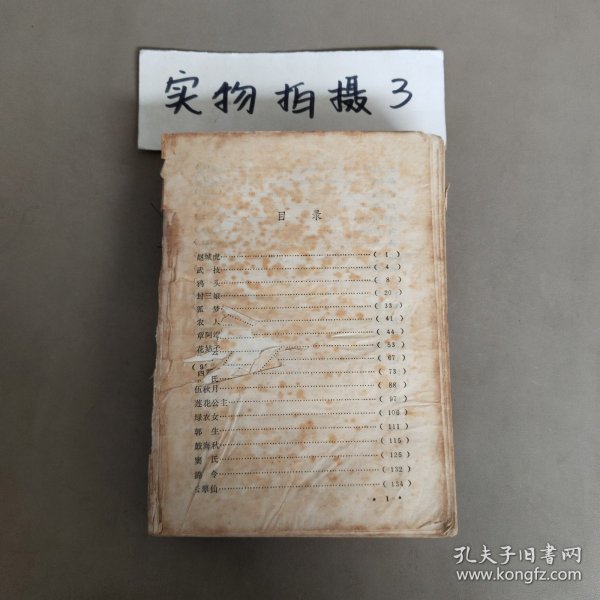 实物拍摄3
目 录
赵城虎 (1)
武 技 (4)
鸦 头 (8)
封三娘 (20)
狐 梦 (33)
农 人 (41)
章阿端 (44)
花姑子 (53)
(67)
西 (73)
氏
伍秋月 (88)
莲花公主 (97)
绿衣女 (106)
郭 生 (111)
彭海秋 (115)
窦 氏 (125)
鸽 (132)
云翠仙 (134)
• 1 •
孔夫子旧书网
www.kongfz.com